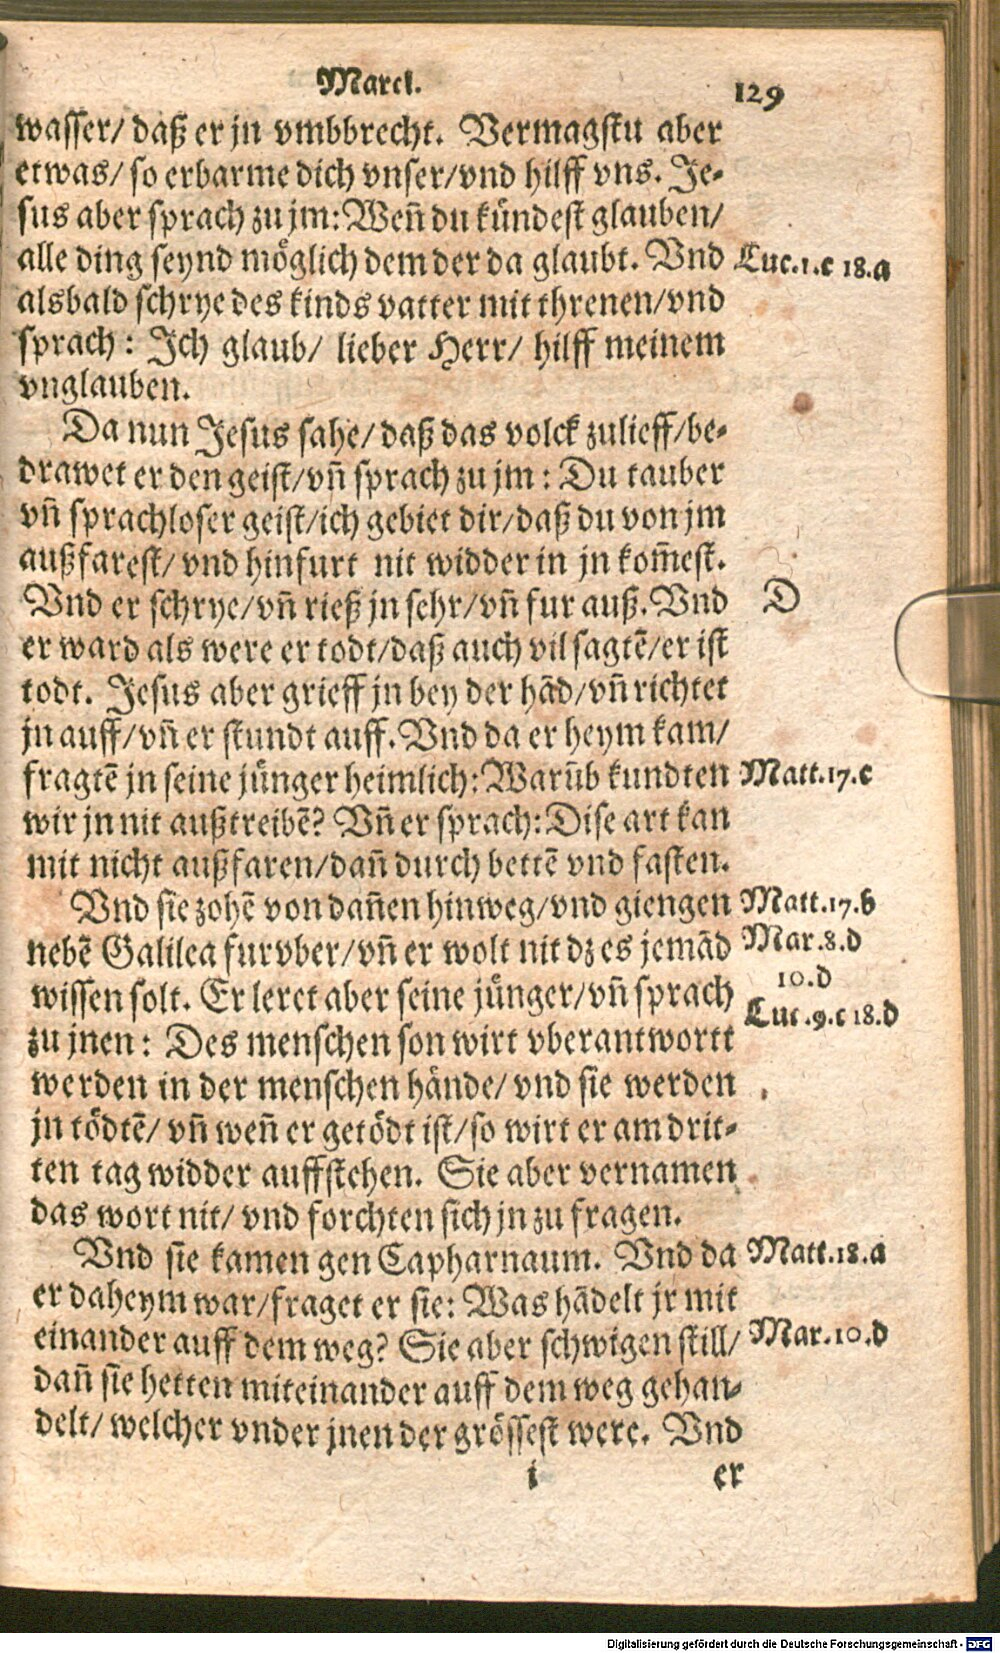 Marci. 129
wasser/ daß er jn vmbbrecht. Vermagstu aber
etwas/ so erbarme dich vnser/ vnd hilff vns. Je-
sus aber sprach zu jm: Weñ du kündest glauben/
alle ding seynd möglich dem der da glaubt. Vnd Luc.1.c 18.a
alsbald schrye des kinds vatter mit threnen/ vnd
sprach: Ich glaub/ lieber Herr/ hilff meinem
vnglauben.
Da nun Jesus sahe/ daß das volck zulieff/ be-
drawet er den geist/ vñ sprach zu jm: Du tauber
vñ sprachloser geist/ ich gebiet dir/ daß du von jm
außfarest/ vnd hinfurt nit widder in jn kom̃est.
Vnd er schrye/ vñ rieß jn sehr/ vñ fur auß. Vnd D
er ward als were er todt/ daß auch vil sagtẽ/ er ist
todt. Jesus aber grieff jn bey der hãd/ vñ richtet
jn auff/ vñ er stundt auff. Vnd da er heym kam/
fragtẽ jn seine jünger heimlich: Warũb kundten Matt.17.c
wir jn nit außtreibẽ? Vñ er sprach: Dise art kan
mit nicht außfaren/ dañ durch bettẽ vnd fasten.
Vnd sie zohẽ von dañen hinweg/ vnd giengen Matt.17.b
nebẽ Galilea furvber/ vñ er wolt nit dz es jemãd Mar.8.d
10.d
wissen solt. Er leret aber seine jünger/ vñ sprach Luc.9.c 18.d
zu jnen: Des menschen son wirt vberantwortt
werden in der menschen hände/ vnd sie werden
jn tödtẽ/ vñ weñ er getödt ist/ so wirt er am drit-
ten tag widder auffstehen. Sie aber vernamen
das wort nit/ vnd forchten sich jn zu fragen.
Vnd sie kamen gen Capharnaum. Vnd da Matt.18.a
er daheym war/ fraget er sie: Was hãdelt jr mit
einander auff dem weg? Sie aber schwigen still/ Mar.10.d
dañ sie hetten miteinander auff dem weg gehan-
delt/ welcher vnder jnen der grössest were. Vnd
i er
Digitalisierung gefördert durch die Deutsche Forschungsgemeinschaft - DFG